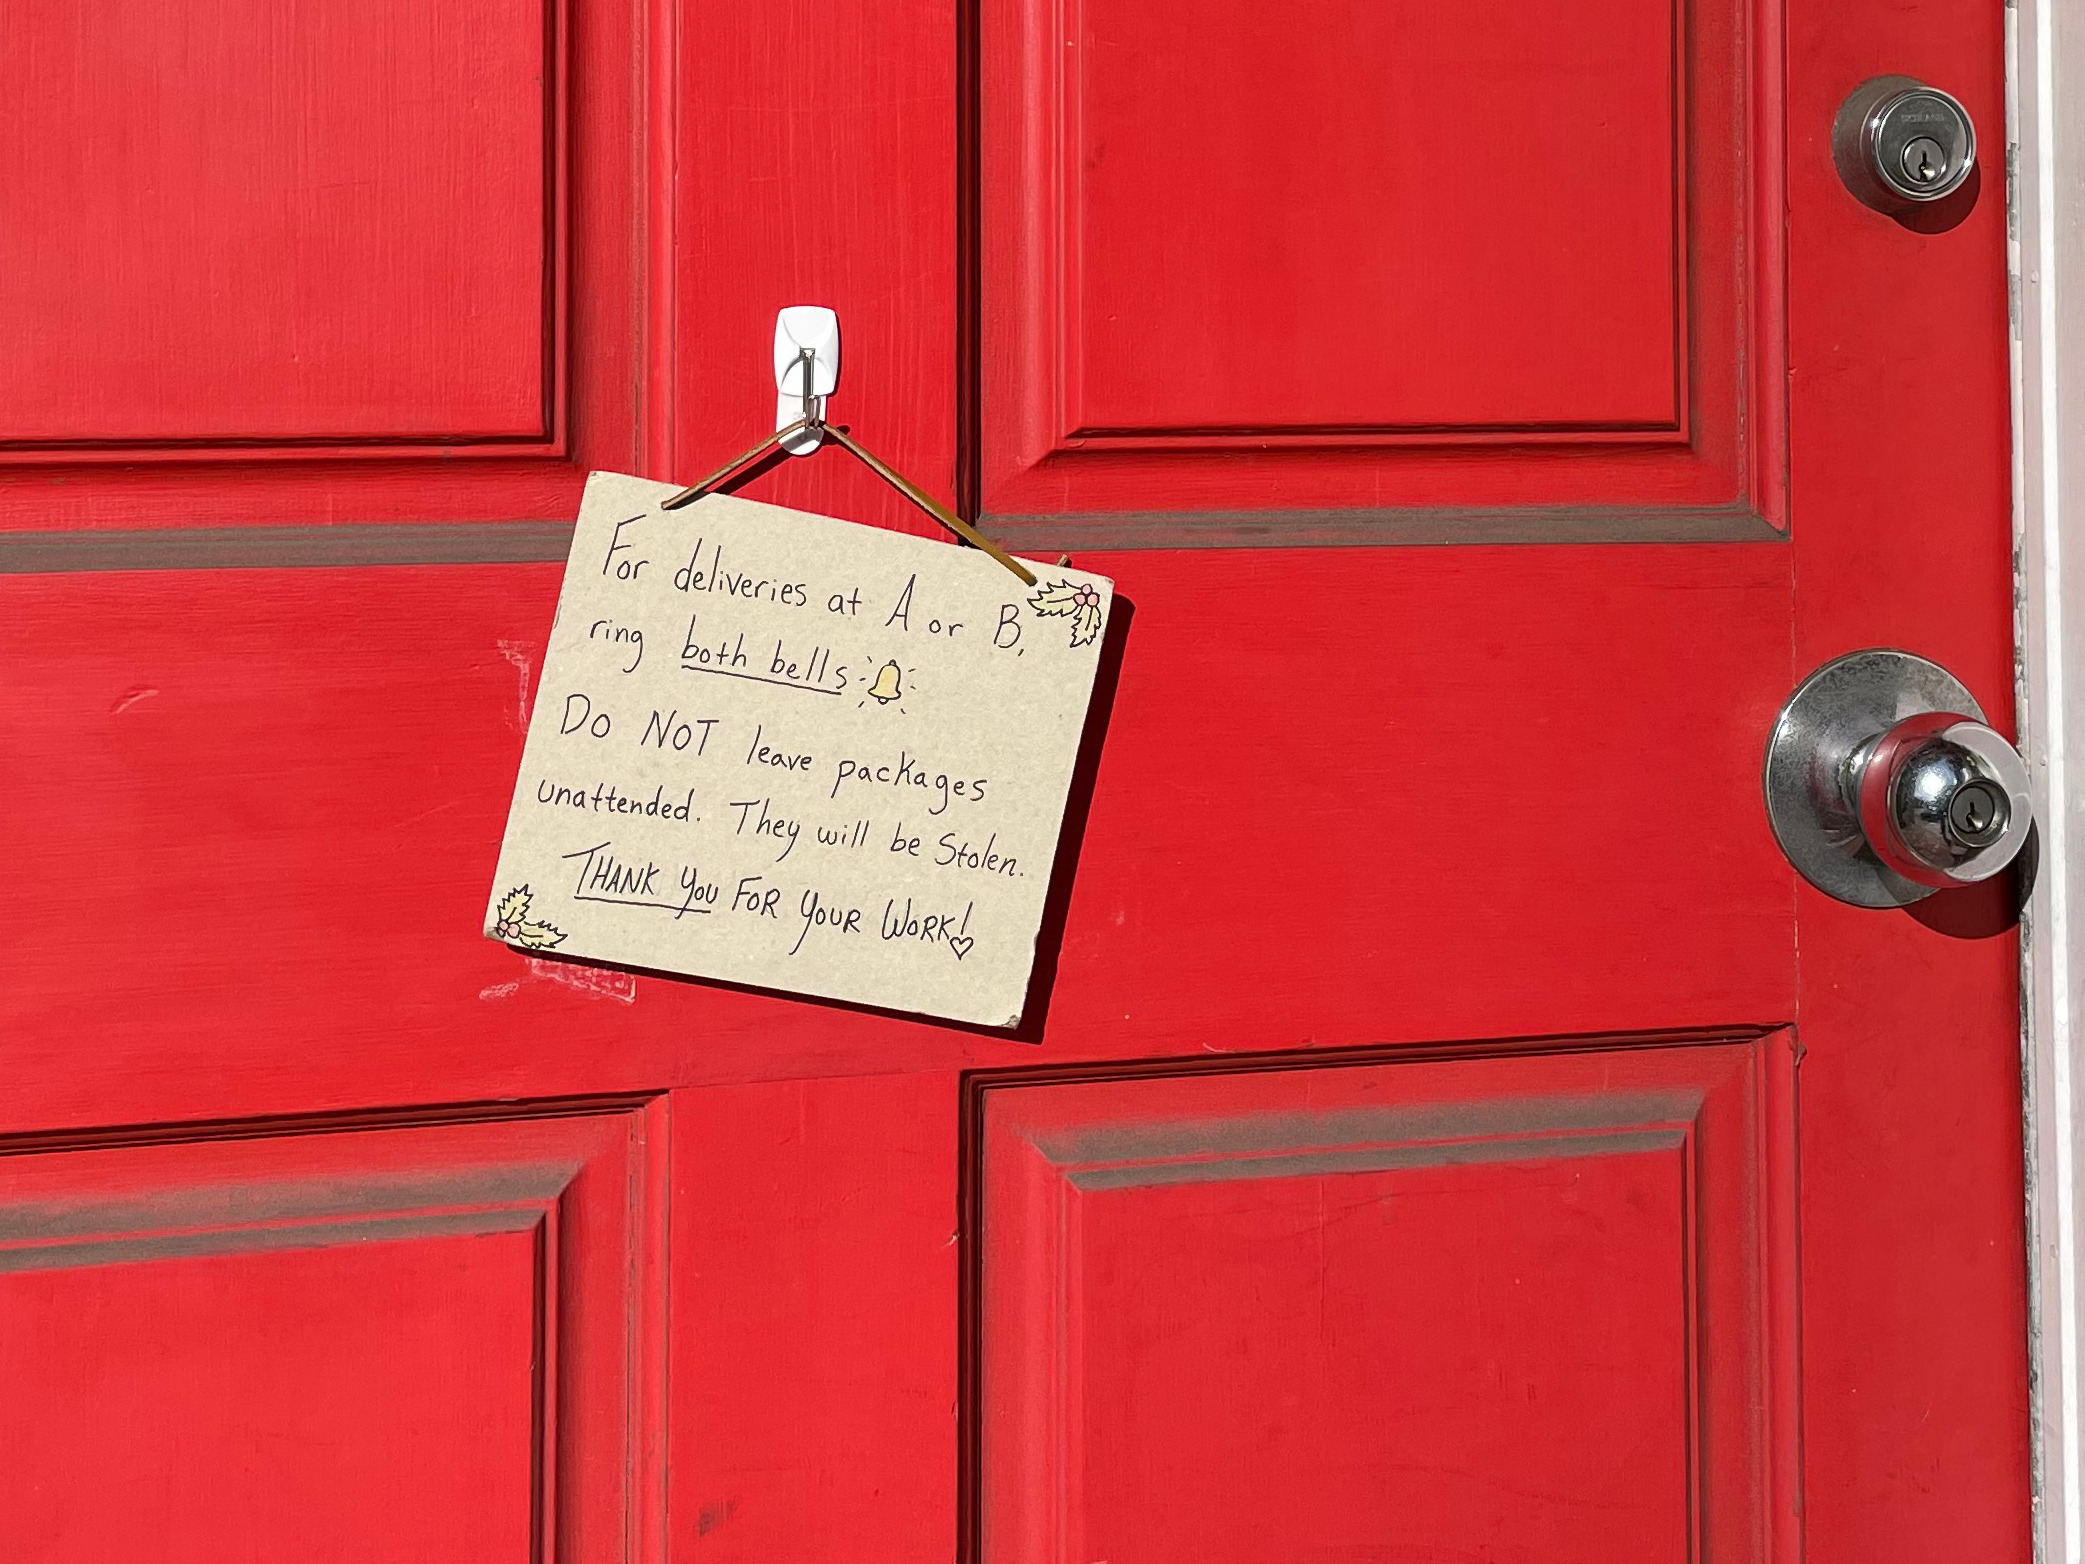 For deliveries at A or B,
ring both bells
Do NOT leave packages
unattended. They will be Stolen.
THANK YOU FOR YOUR WORK!
SCHLAGE